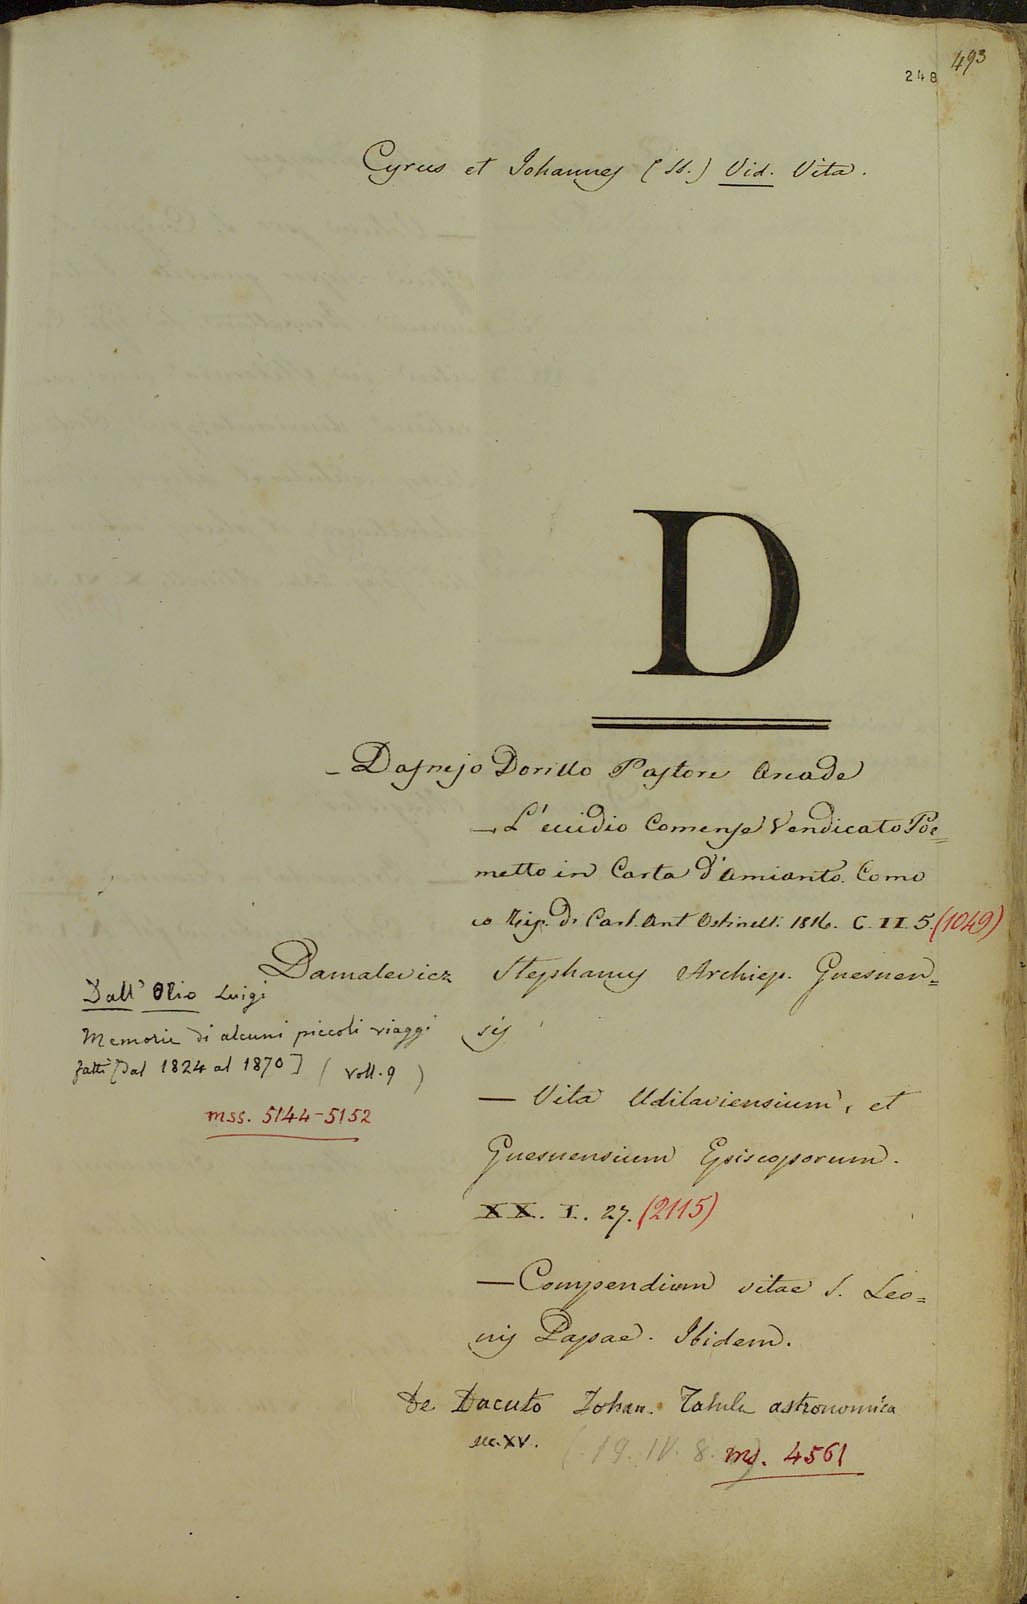 493
248
Cyrus et Johannes (SS.) Vid. Vita.
D
– Dafnejo Dorillo Pastore Arcade
– L'eccidio Comense Vendicato Poe=
metto in Carta d'Amianto. Como
co Tip. di Carl. Ant Ostinelli. 1816. C. II. 5. (1049)
Damalevicz Stephanus Archiep. Gnesnen=
sis
Dall' Olio Luigi
Memorie di alcuni piccoli viaggi
fatti [dal 1824 al 1870] (voll. 9)
mss. 5144-5152
— Vita Udilaviensium, et
Gnesnensium Episcoporum.
XX. I. 27. (2115)
— Compendium vitae S. Leo=
nis Papae. Ibidem.
De Dacuto Johan. Tabula astronomica
sec. XV. (19. IV. 8.) ms. 4561